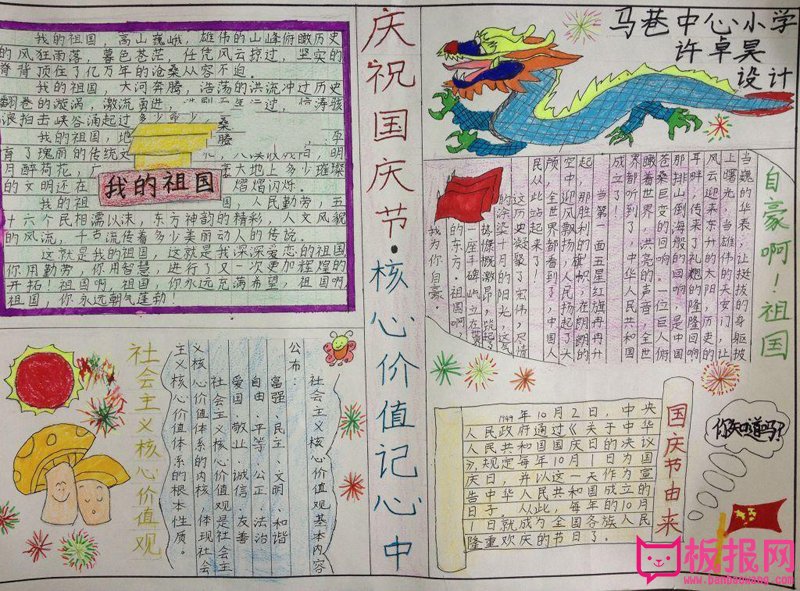 我的祖国,高山巍峨,雄伟的山峰俯瞰历史
的风狂雨落,暮色苍茫,任凭风云掠过,坚实的
脊背顶住了亿万年的沧桑从容不迫
我的祖国 大河奔腾,浩荡的洪流冲过历史
翻卷的漩涡,激流勇进,
浪拍击峡谷涌起过多少
我的祖国,地
育了瑰丽的传统文
月醉荷花,
的文明还在 熠熠闪烁。
我的祖国
我的祖国 人民勤劳,五
十六个民相濡以沫,东方神韵的精彩,人文风貌
的风流,千百流传着多少美丽动人的传说。
这就是我的祖国,这就是我深深爱恋的祖国
你用勤劳,你用智慧,进行了又一次更加辉煌的
开拓!祖国啊,祖国,你永远充满希望,祖国啊
祖国,你永远朝气蓬勃!
庆祝国庆节·核心价值记心中
马巷中心小学
许卓昊
设计
自豪啊!祖国
当巍的华表,让挺拔的身躯披
上曙光,当雄伟的天安门,让
风云迎来东升的太阳,历史的
耳畔,传来了礼炮的隆隆回响
那排山倒海般的回响,是中国
苍桑巨变的回响。一位巨人俯
瞰着世界,洪亮的声音,全世
界都听到了,中华人民共和国
成立了
当第一面五星红旗冉冉升
起,那胜利的旗帜,在朗朗的
空中迎风飘扬,人民扬起了大
颅,全世界都看到了,中国人
民从此站起来了!
这历史凝聚了宏伟,尽情
的涂染十月的阳光,
的东方。祖国啊
我为你自豪。
社会主义核心价值观
社会主义核心价值观基本内容
公布:
富强、民主、文明、和谐
自由、平等、公正、法治
爱国、敬业、诚信、友善
社会主义核心价值观是社会主
义核心价值体系的内核,体现社会
主义核心价值体系的根本性质。
国庆节由来
1949年10月2日,中央
人民政府通过《关于中华
人民共和国国庆日的决议
》,规定每年10月1日为国
庆日,并以这一天作为宣
告中华人民共和国成立的
日子。从此,每年的10月
1日就成为全国各族人民
隆重欢庆的节日了。
你知道吗?
板报网
www.banbaowang.com